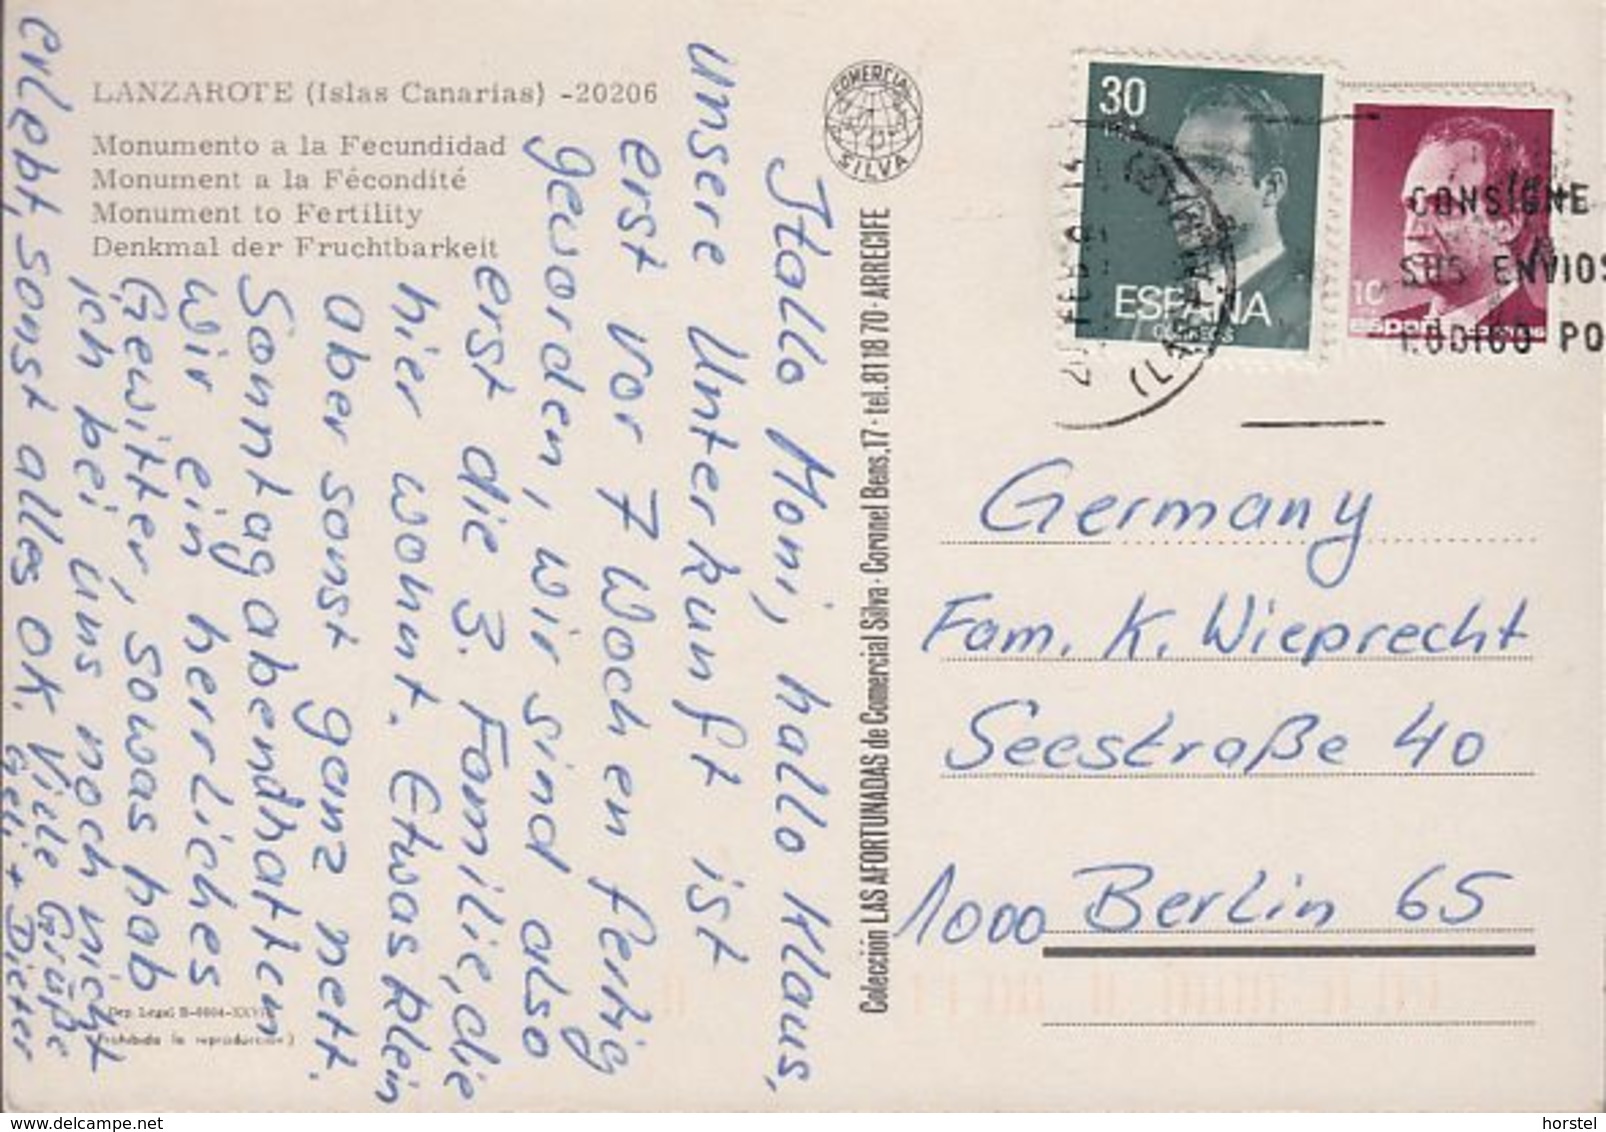 LANZAROTE (Islas Canarias) -20206
Monumento a la Fecundidad
Monument a la Fécondité
Monument to Fertility
Denkmal der Fruchtbarkeit
COMERCIAL
SILVA
Hallo Moni, hallo Klaus,
unsere Unterkunft ist
erst vor 7 Wochen fertig
geworden, wir sind also
erst die 3. Familie, die
hier wohnt. Etwas klein
aber sonst ganz nett.
Sonntagabend hatten
wir ein herrliches
Gewitter, sowas hab
ich bei uns noch nicht
erlebt, sonst alles ok. Viele Grüße
Geli + Dieter
Dep. Legal B-
(Prohibida la reproducción)
Colección LAS AFORTUNADAS de Comercial Silva · Coronel Bens, 17 · tel. 81 18 70 · ARRECIFE
30
ESPAÑA
CORREOS
10
España
CONSIGNE
SUS ENVIOS
CODIGO PO
Germany
Fam. K. Wieprecht
Seestraße 40
1000 Berlin 65
www.delcampe.net
horstel